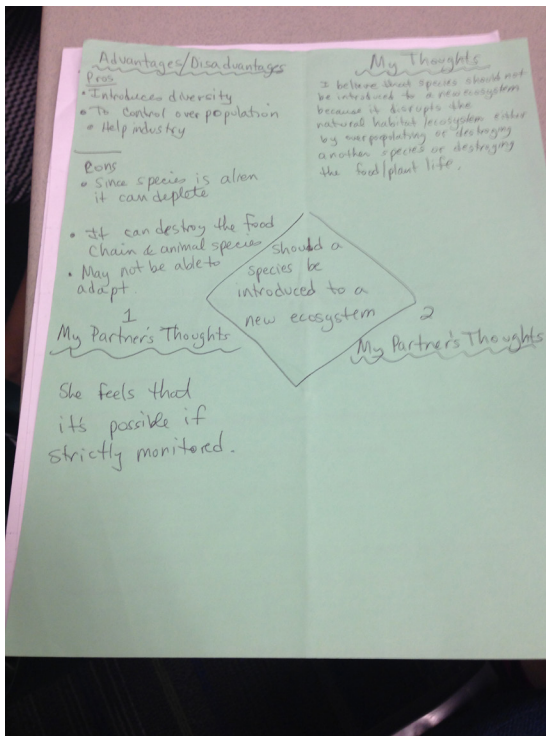 Advantages/Disadvantages
Pros
• Introduces diversity
• To control over population
• Help industry
Cons
• Since species is alien
it can deplete
• It can destroy the food
chain & animal species
• May not be able to
adapt
My Thoughts
I believe that species should not
be introduced to a new ecosystem
because it disrupts the
natural habitat/ecosystem either
by overpopulating or destroying
another species or destroying
the food/plant life.
should a
species be
introduced to a
new ecosystem
1
My Partner's Thoughts
She feels that
it's possible if
strictly monitored.
2
My Partner's Thoughts